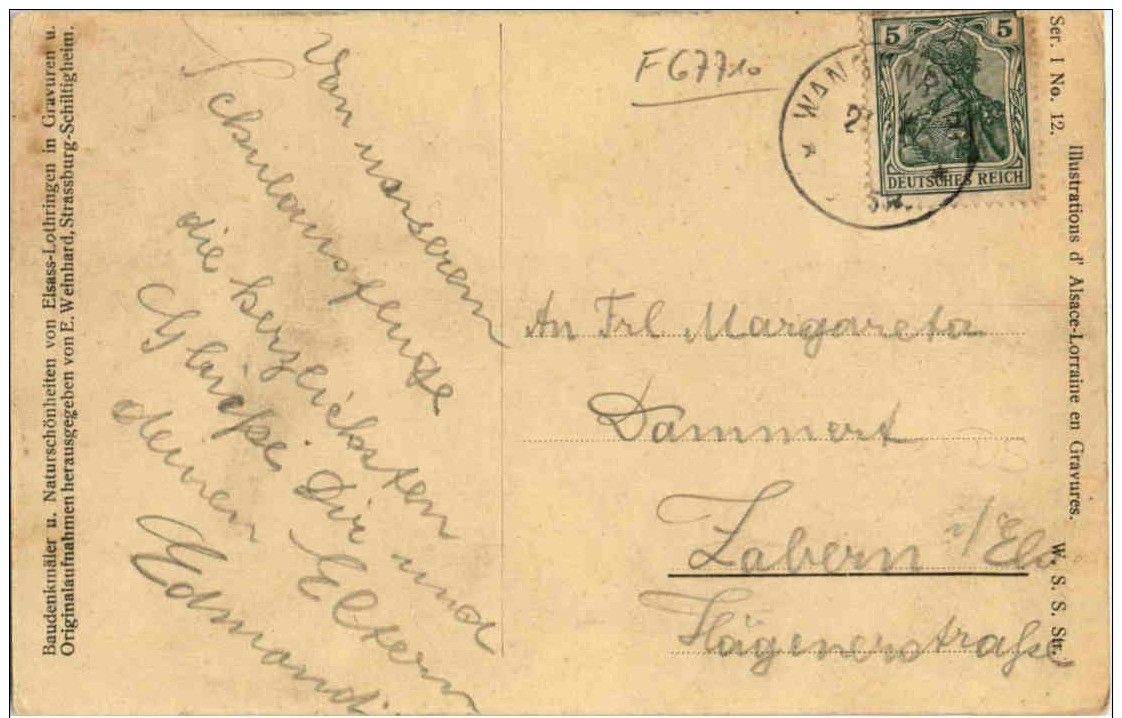 Baudenkmäler u. Naturschönheiten von Elsass-Lothringen in Gravuren u.
Originalaufnahmen herausgegeben von E. Weinhard, Strassburg-Schiltigheim.
Von unserem
Schulausfluge
die herzlichsten
Grüße Dir und
deinen Eltern
Edmond
F67710
5 5
DEUTSCHES REICH
WANG
An Frl Margareta
Dammert
Zabern i/Els
Hägenerstraße
Ser. I No. 12. Illustrations d' Alsace-Lorraine en Gravures. W. S. S. Str.